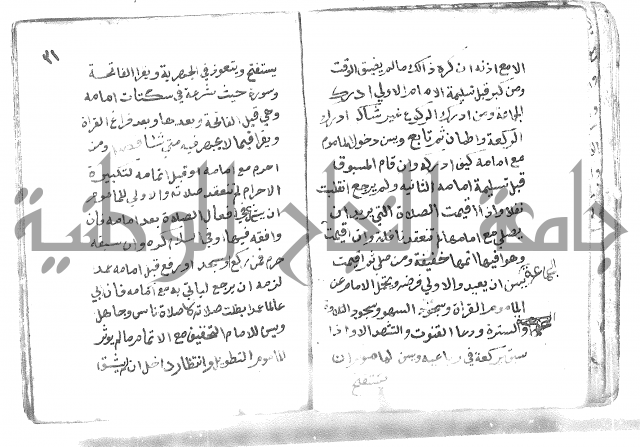 الا مع اذنه ان كره ذالك ما لم يضيق الوقت
ومن كبر قبل تسليمة الامام الاولى ادرك
الجماعة ومن ادرك الركوع غير شاك ادرك
الركعة واطمان ثم تابع وسن دخول الماموم
مع امامه كيف ادركه وان قام المسبوق
قبل تسليمة امامه الثانيه ولم يرجع انقلبت
نفلا واذا اقيمت الصلاة التي يريد ان
يصلي مع امامها لم تنعقد نافلة وان اقيمت
وهو فيها اتمها خفيفة ومن صلى ثم اقيمت
الجماعة
سن ان يعيد والاولى فرضه ويتحمل الامام عن
الماموم القراة وسجود السهو وسجود التلاوة
والسترة ودعا القنوت والتشهد الاول اذا
سبق بركعة في رباعيه وسن للماموم ان
يستفتح
٣١
يستفتح ويتعوذ في الجهرية ويقرا الفاتحة
وسورة حيث شرعت في سكتات امامه
وهي قبل الفاتحة وبعدها وبعد فراغ القراة
ويقرا فيما لا يجهر فيه متى شا ومن
احرم مع امامه او قبل اتمامه لتكبيرة
الاحرام لم تنعقد صلاته والاولى للماموم
ان يشرع في افعال الصلاة بعد امامه فان
وافقه فيها او في السلام كره وان سبقه
حرم فمن ركع او سجد او رفع قبل امامه عمدا
لزمه ان يرجع لياتي به مع امامه فان ابى
عالما عمدا بطلت صلاته لا صلاة ناس وجاهل
ويسن للامام التخفيف مع الاتمام ما لم يوثر
الماموم التطويل وانتظار داخل ان لم يشق
جامعة النجاح الوطنية